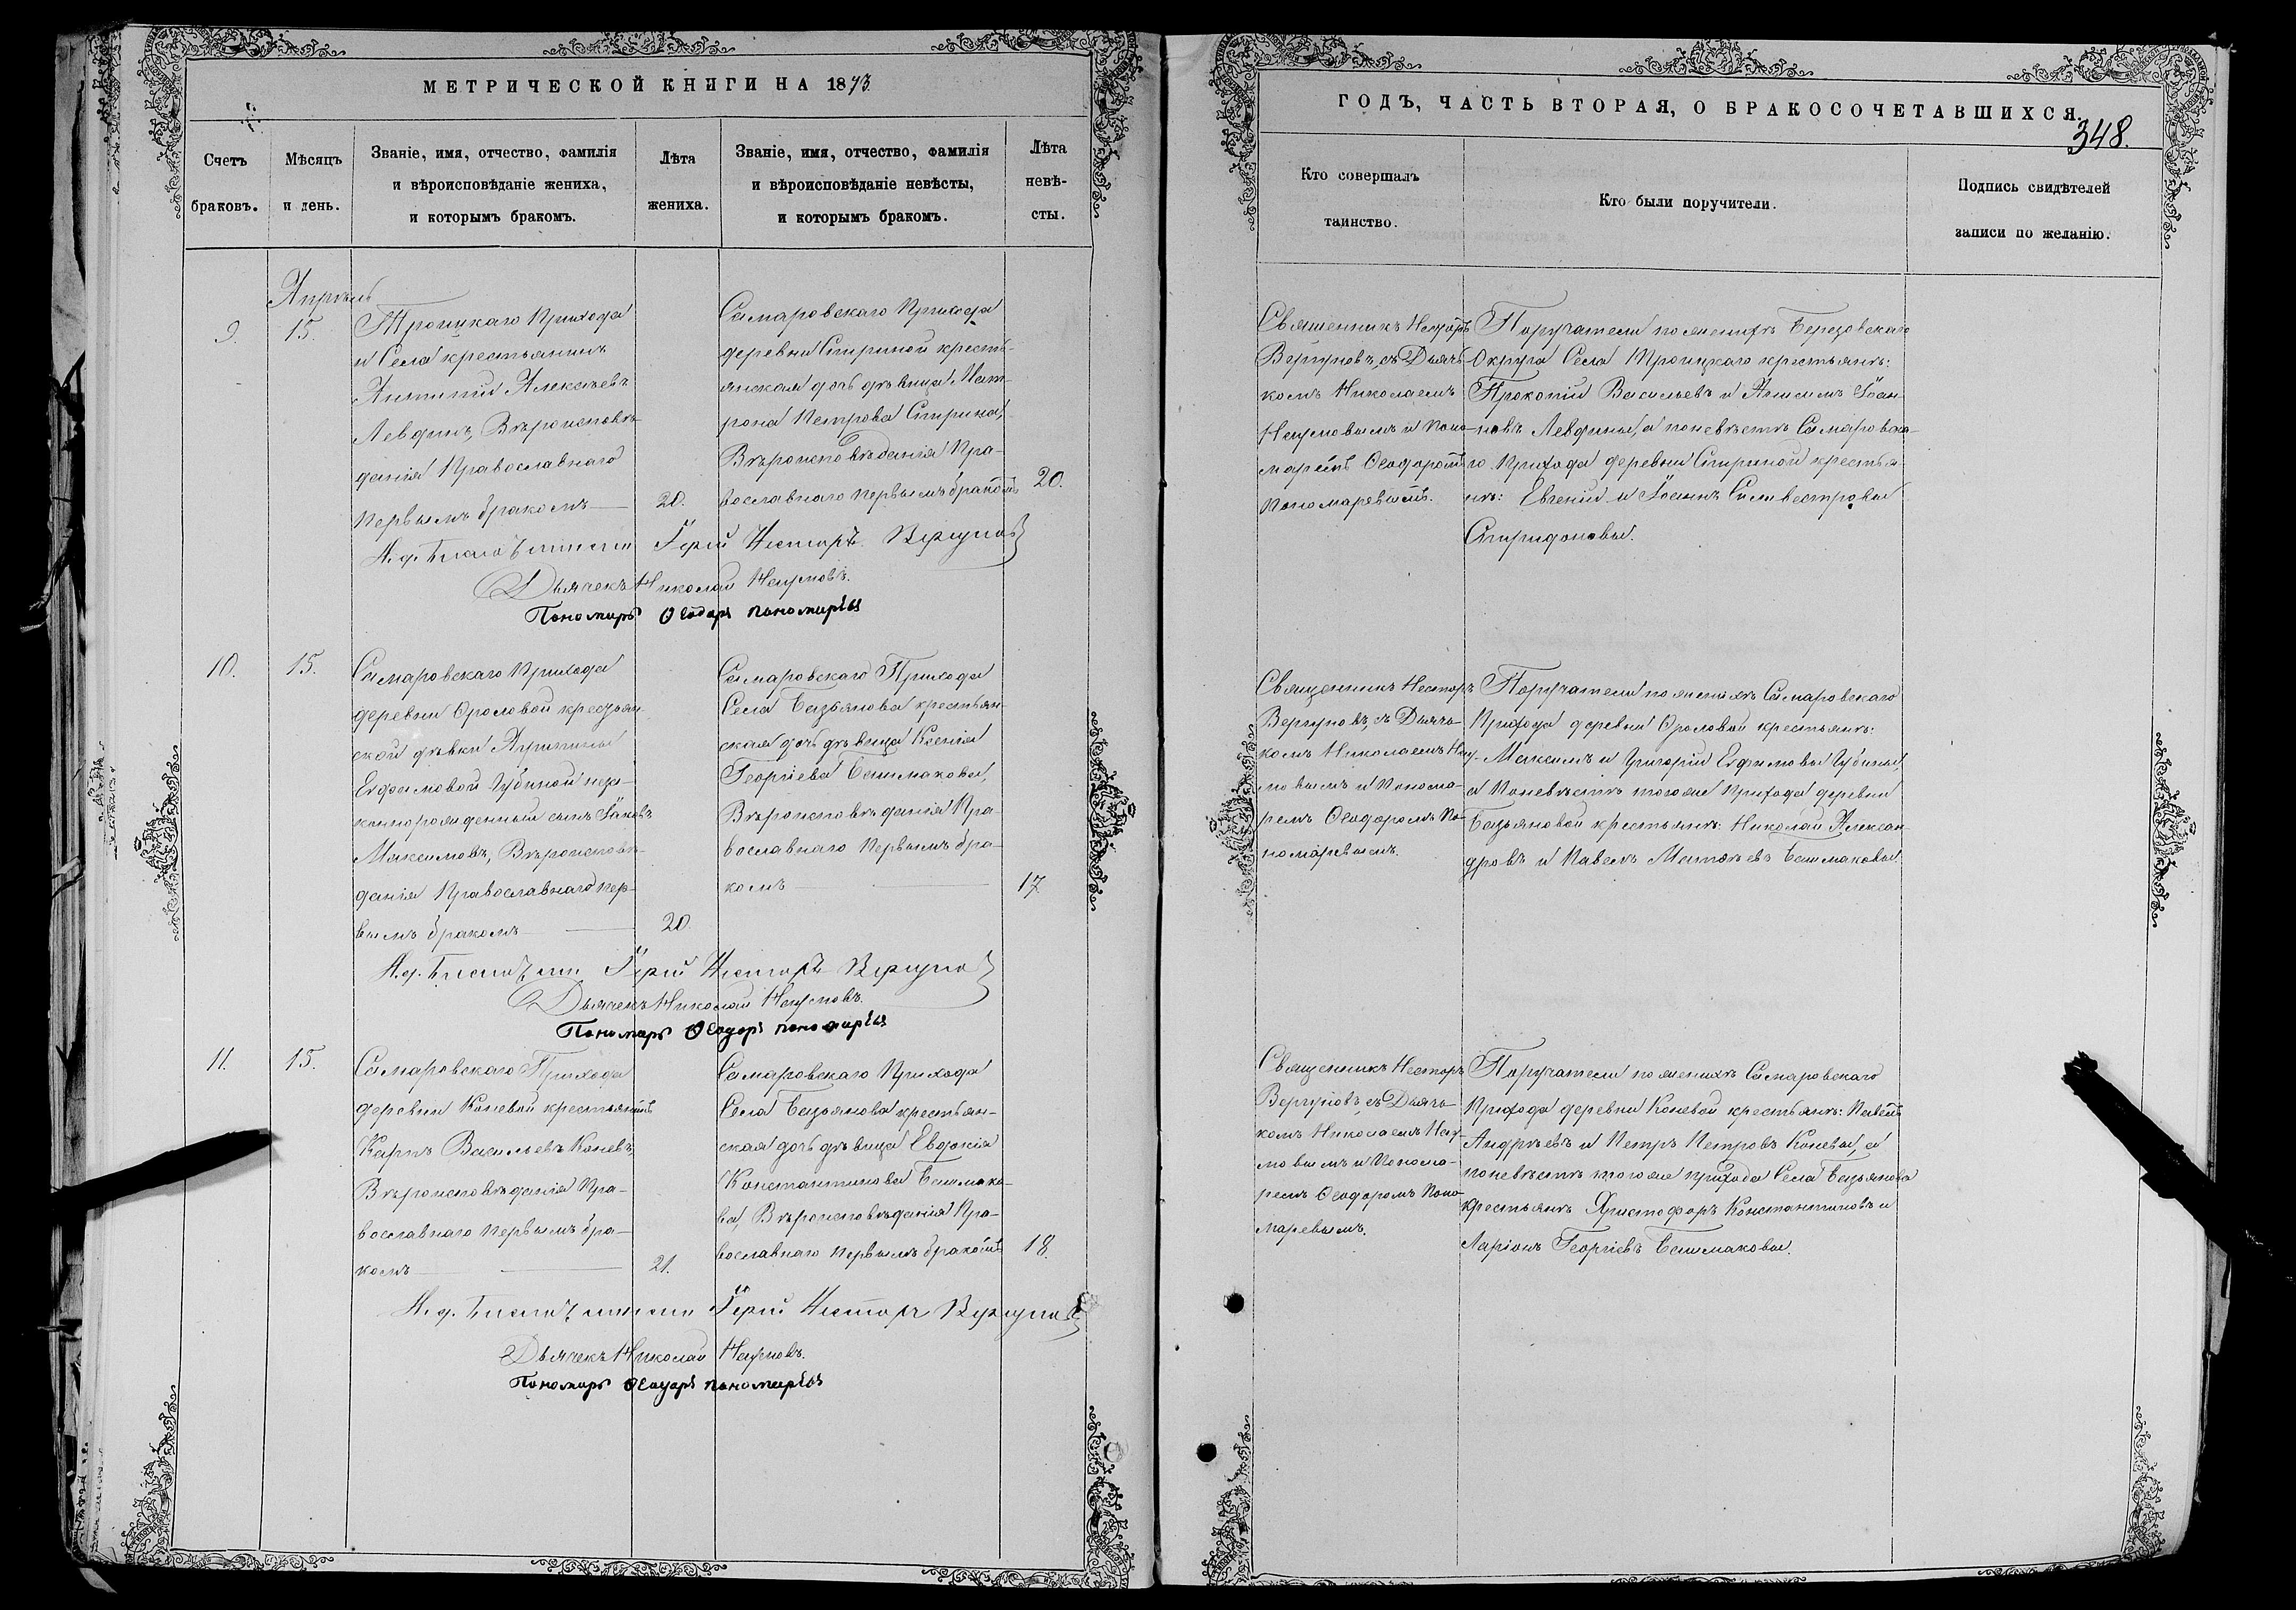 МЕТРИЧЕСКОЙ КНИГИ НА 1873
Счетъ браковъ.
Мѣсяцъ и день.
Званіе, имя, отчество, фамилія
и вѣроисповѣданіе жениха,
и которымъ бракомъ.
Лѣта жениха.
Званіе, имя, отчество, фамилія
и вѣроисповѣданіе невѣсты,
и которымъ бракомъ.
Лѣта невѣ-
сты.
Апрѣль
9.
15.
Троицкаго Прихода
и Села крестьянинъ
Антипій Алексѣевъ
Левдинъ, Вѣроисповѣ-
данія Православнаго
первымъ бракомъ
20.
Самаровскаго Прихода
деревни Спириной кресть-
янская дочь дѣвица Мат-
рона Петрова Спирина,
Вѣроисповѣданія Пра-
вославнаго первымъ бракомъ
20.
Іерей Несторъ Вергуновъ
Дьячекъ Николай Наумовъ.
Пономарь Ѳеодоръ Пономаревъ
10.
15.
Самаровскаго Прихода
деревни Фроловой крестьян-
ской дѣвки Агрипины
Евфимовой Губиной неза-
коннорожденный сынъ Іаковъ
Максимовъ, Вѣроисповѣ-
данія Православнаго пер-
вымъ бракомъ
20.
Самаровскаго Прихода
Села Базьянова крестьян-
ская дочь дѣвица Ксенія
Георгіева Башмакова,
Вѣроисповѣданія Пра-
вославнаго первымъ бра-
комъ
17.
Іерей Несторъ Вергуновъ
Дьячекъ Николай Наумовъ.
Пономарь Ѳеодоръ Пономаревъ
11.
15.
Самаровскаго Прихода
деревни Коневой крестьянинъ
Карпъ Васильевъ Коневъ,
Вѣроисповѣданія Пра-
вославнаго первымъ бра-
комъ
21.
Самаровскаго Прихода
Села Базьянова крестьян-
ская дочь дѣвица Евдокія
Константинова Башмако-
ва, Вѣроисповѣданія Пра-
вославнаго первымъ бракомъ
18.
Іерей Несторъ Вергуновъ
Дьячекъ Николай Наумовъ.
Пономарь Ѳеодоръ Пономаревъ
ГОДЪ, ЧАСТЬ ВТОРАЯ, О БРАКОСОЧЕТАВШИХСЯ.
348.
Кто совершалъ
таинство.
Кто были поручители.
Подпись свидѣтелей
записи по желанію.
Священникъ Несторъ
Вергуновъ, съ Дьяч-
комъ Николаемъ
Наумовымъ и Поно-
маремъ Ѳеодоромъ
Пономаревымъ.
Поручатели по женихѣ Березовскаго
Округа Села Троицкаго крестьяне:
Прокопій Васильевъ и Анисимъ Іоан-
новъ Левдины, а по невѣстѣ Самаровска-
го Прихода деревни Спириной крестья-
не: Евгеній и Іоаннъ Силивестровы
Спиридоновы.
Священникъ Несторъ
Вергуновъ, съ Дьяч-
комъ Николаемъ Нау-
мовымъ и Понома-
ремъ Ѳеодоромъ По-
номаревымъ.
Поручатели по женихѣ Самаровскаго
Прихода деревни Фроловой крестьяне:
Максимъ и Григорій Евфимовы Губины,
а по невѣстѣ тогоже Прихода деревни
Базьяновой крестьяне: Николай Алексан-
дровъ и Павелъ Матѳѣевъ Башмаковы.
Священникъ Несторъ
Вергуновъ, съ Дьяч-
комъ Николаемъ Нау-
мовымъ и Понома-
ремъ Ѳеодоромъ Поно-
маревымъ.
Поручатели по женихѣ Самаровскаго
Прихода деревни Коневой крестьяне: Павелъ
Андреевъ и Петръ Петровъ Коневы, а
по невѣстѣ тогоже прихода Села Базьянова
крестьяне Христофоръ Константиновъ и
Ларіонъ Георгіевъ Башмаковы.